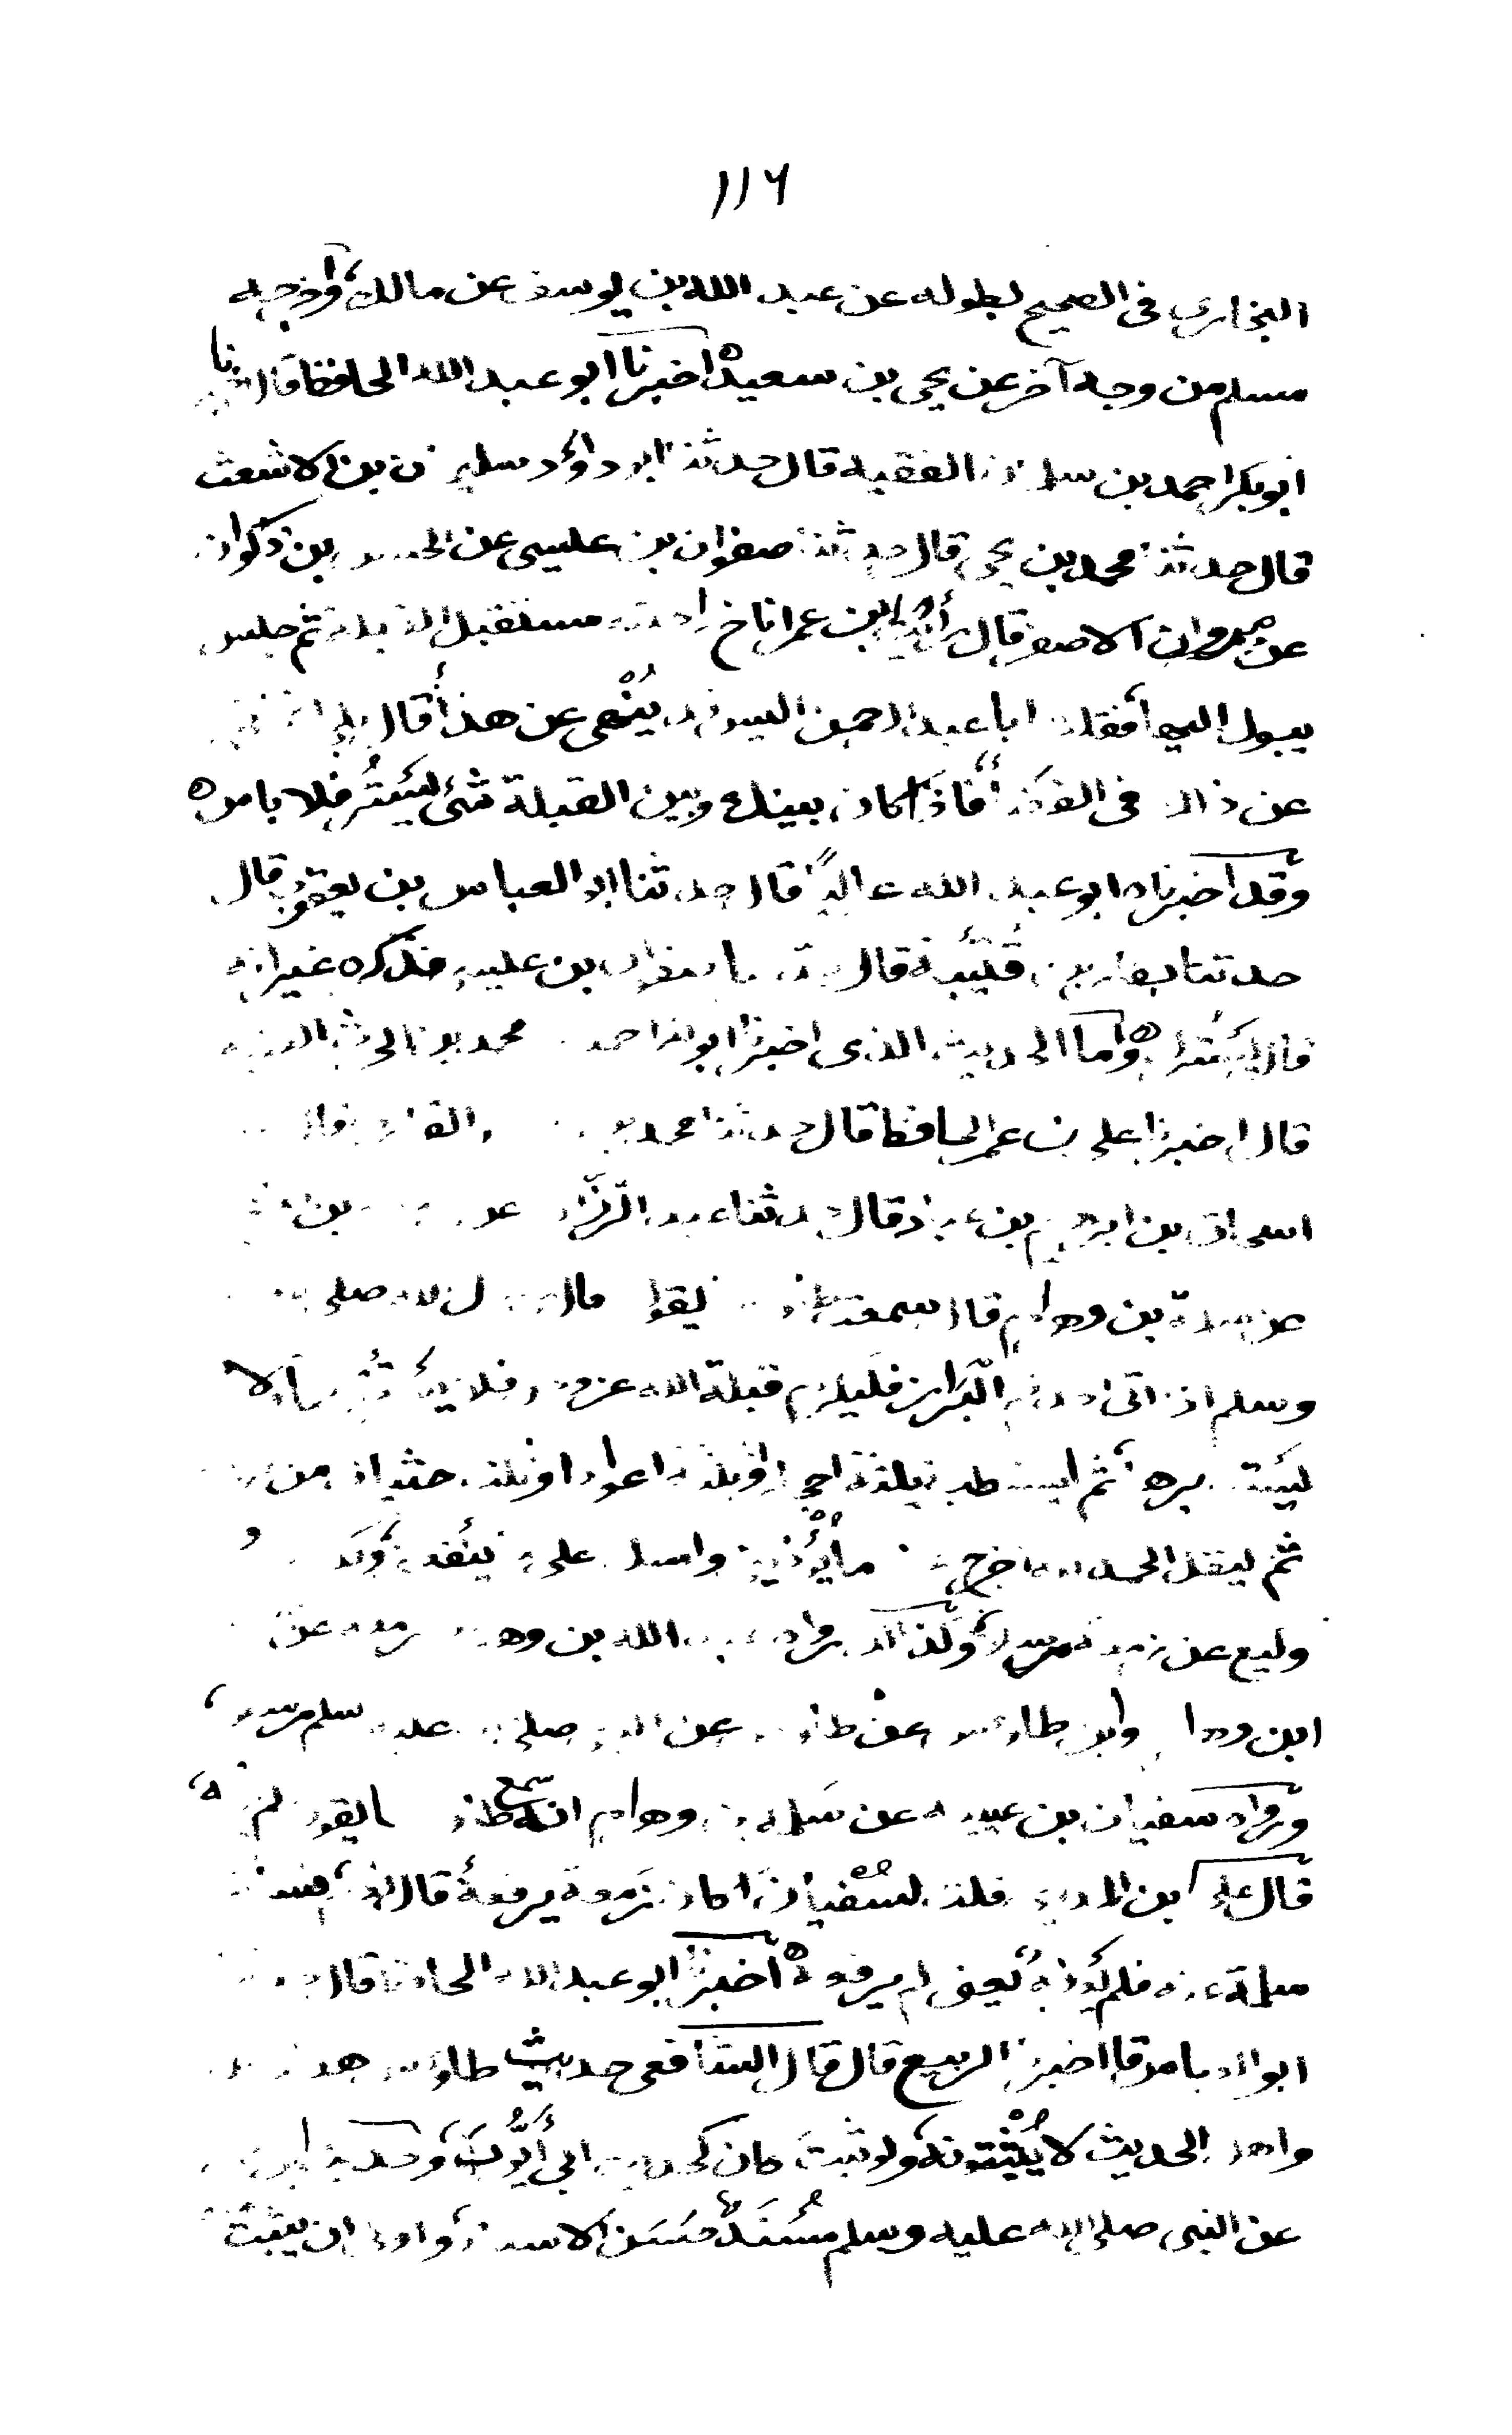 ١١٦
البخاري في الصحيح بطوله عن عبد الله بن يوسف عن مالك، واخرجه
مسلم من وجه آخر عن يحيى بن سعيد ه اخبرنا ابو عبد الله الحافظ قال ثنا
ابو بكر احمد بن سلمان الفقيه قال حدثنا ابو داؤد سليمان بن الاشعث
قال حدثنا محمد بن يحيى قال حدثنا صفوان بن عيسى عن الحسن بن ذكوان
عن مروان الاصفر قال رأيت ابن عمر اناخ راحلته مستقبل القبلة ثم جلس
يبول اليها فقلت ابا عبد الرحمن اليس قد نُهى عن هذا قال بلى انما نهى
عن ذلك في الفضاء فاذا كان بينك وبين القبلة شئ يستُر فلا باس ه
وقد اخبرناه ابو عبد الله عاليًا قال حدثنا ابو العباس بن يعقوب قال
حدثنا بكار بن قُتَيبة قال حدثنا صفوان بن عيسى فذكره غير انه
قال يستره واما الحديث الذى اخبرنا ابو بكر احمد بن محمد بن الحارث الفقيه
قال اخبرنا على بن عمر الحافظ قال حدثنا محمد بن
اسحاق بن ابراهيم بن عباد قال حدثنا عبد الرزاق عن بن
عن سلمة بن وهرام قال سمعت طاؤسا يقول قال رسول الله صلى الله
وسلم اذا اتى احدكم البَراز فليكرم قبلة الله عز وجل فلا يستقبلها ولا
يستدبرها ثم ليستطب بثلاثة احجار او ثلاثة اعواد او ثلاث حثيات من
ثم ليقل الحمد لله الذي اخرج عنى ما يؤذيني وامسك على ما ينفعنى وكذ
وكيع عن زمعة مرسلا، وكذلك رواه عبد الله بن وهب عن زمعة عن
ابن وهرام وابن طاؤس عن طاؤس عن النبي صلى الله عليه وسلم مرسلا،
ورواه سفيان بن عيينة عن سَلمة بن وهرام انه سمع طاؤسا يقول
قال على بن المديني قلت لسُفيان اكان زمعة يرفعه قال نعم، فسألت
سلمة عنه فلم يعرفه يعنى لم يرفعه ه اخبرنا ابو عبد الله الحافظ قال
ابو العباس قال اخبرنا الربيع قال قال الشافعي حديث طاؤس هذا
واهل الحديث لا يُثبتونه، ولو ثبت كان كحديث ابى أيّوب، وحديث
عن النبي صلى الله عليه وسلم مُسنَدٌ حسن الاسناد، واولى ان يثبت